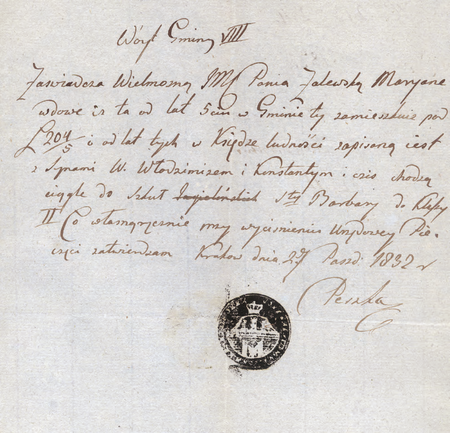 Wóyt Gminy VIII
Zaświadcza Wielmożną JM Panią Zalewską Maryane
wdowę iż ta od lat 5ciu w Gminie ty zamieszkuie pod
L 204/5 i od lat tych w Księdze ludności zapisaną iest
z Synami W. Włodzimirzem i Konstantym i ciż chodzą
ciągle do Szkół Jagielońskich Stey Barbary do Klassy
II Co własnoręcznie przy wyciśnieniu Urzędowey Pie-
częci zatwierdzam Kraków dnia 27 Paźd: 1832 r
Peszka